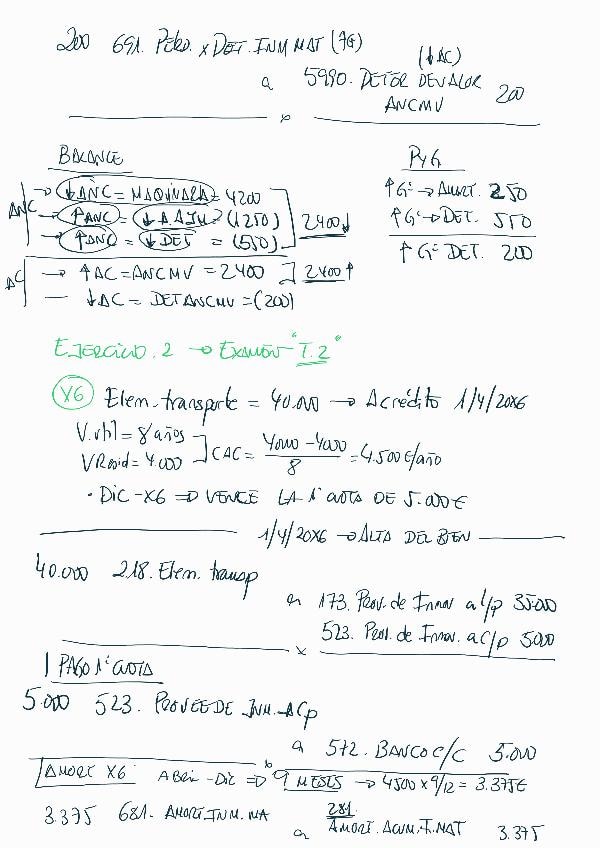 200 691. Pérd. x Det. INM MAT (↑G)
(↓AC)
a 5990. DETER DE VALOR ANCMV 200
x
BALANCE PyG
ANC → ↓ANC = MAQUINARIA = 4200
→ ↑ANC = ↓A.A.I.M = (1250)
→ ↑ANC = ↓DET = (550)
2400↓
↑Gº → AMORT. 250
↑Gº → DET. 550
↑Gº DET. 200
AC → ↑AC = ANCMV = 2400 2400↑
— ↓AC = DET ANCMV = (200)
EJERCICIO. 2 → EXAMEN "T.2"
X6 Elem. transporte = 40.000 → A crédito 1/4/20X6
V. útil = 8 años
V Resid = 4.000
CAC = 40000 - 4000 / 8 = 4.500 €/año
· DIC - X6 ⇒ VENCE LA 1ª CUOTA DE 5.000 €
1/4/20X6 → ALTA DEL BIEN
40.000 218. Elem. transp
a 173. Prov. de Inmov a l/p 35.000
523. Prov. de Inmov. a c/p 5.000
x
PAGO 1ª CUOTA
5.000 523. PROVEE DE INM. A Cp
a 572. BANCO C/C 5.000
x
AMORT X6 ABRIL - DIC ⇒ 9 MESES → 4500 x 9/12 = 3.375€
3.375 681. AMORT. INM. MA
a 281. AMORT. ACUM. I. MAT 3.375